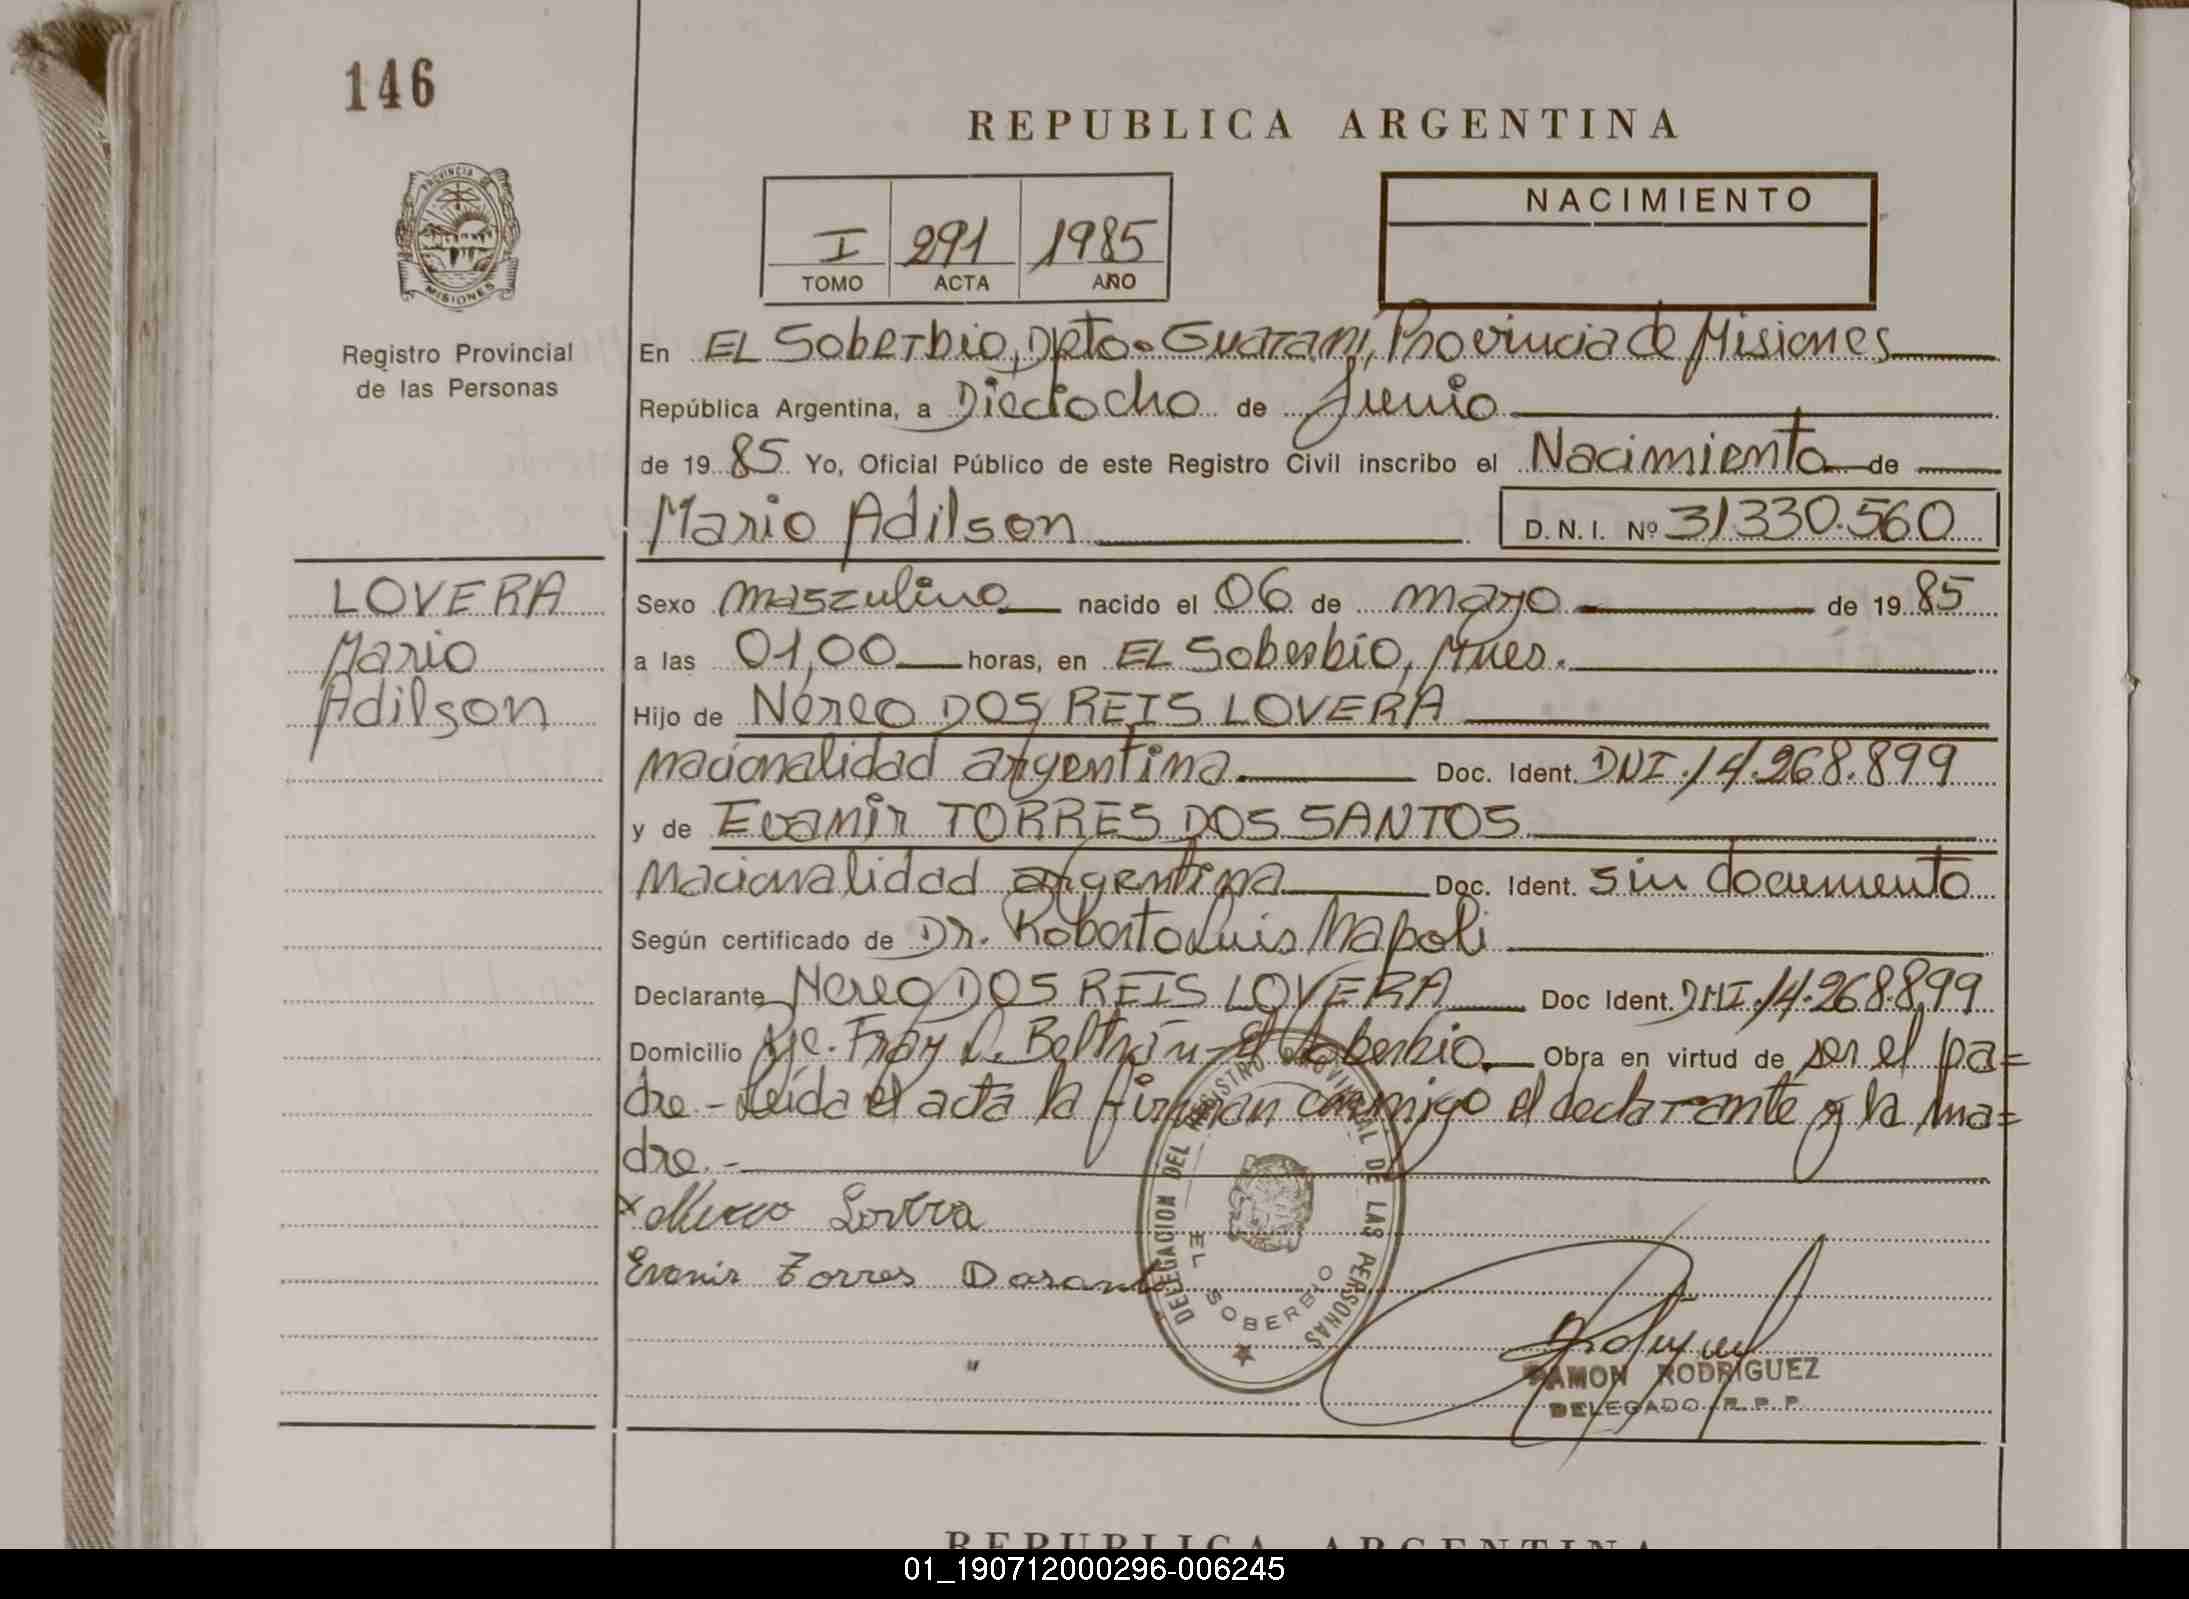 146
REPUBLICA ARGENTINA
PROVINCIA DE
MISIONES
Registro Provincial
de las Personas
I 291 1985
TOMO ACTA AÑO
NACIMIENTO
En EL Soberbio, Dpto. Guarani, Provincia de Misiones
República Argentina, a Dieciocho de Junio
de 1985 Yo, Oficial Público de este Registro Civil inscribo el Nacimiento de
Mario Adilson
D. N. I. Nº 31330.560
LOVERA
Mario
Adilson
Sexo masculino nacido el 06 de mayo de 1985
a las 01,00 horas, en EL Soberbio, Mnes.
Hijo de Nereo DOS REIS LOVERA
nacionalidad argentina Doc. Ident. DNI. 14.268.899
y de Evanir TORRES DOS SANTOS
nacionalidad argentina Doc. Ident. sin documento
Según certificado de Dr. Roberto Luis Napoli
Declarante Nereo DOS REIS LOVERA Doc Ident. DNI. 14.268.899
Domicilio Pje. Fray L. Beltrán - El Soberbio. Obra en virtud de ser el pa=
dre - Leída el acta la firman conmigo el declarante y la ma=
dre. -
x Nereo Lovera
Evanir Torres Dosant
DELEGACION DEL REGISTRO PROVINCIAL DE LAS PERSONAS
EL SOBERBIO
RAMON RODRIGUEZ
DELEGADO R. P. P.
REPUBLICA ARGENTINA
01_190712000296-006245